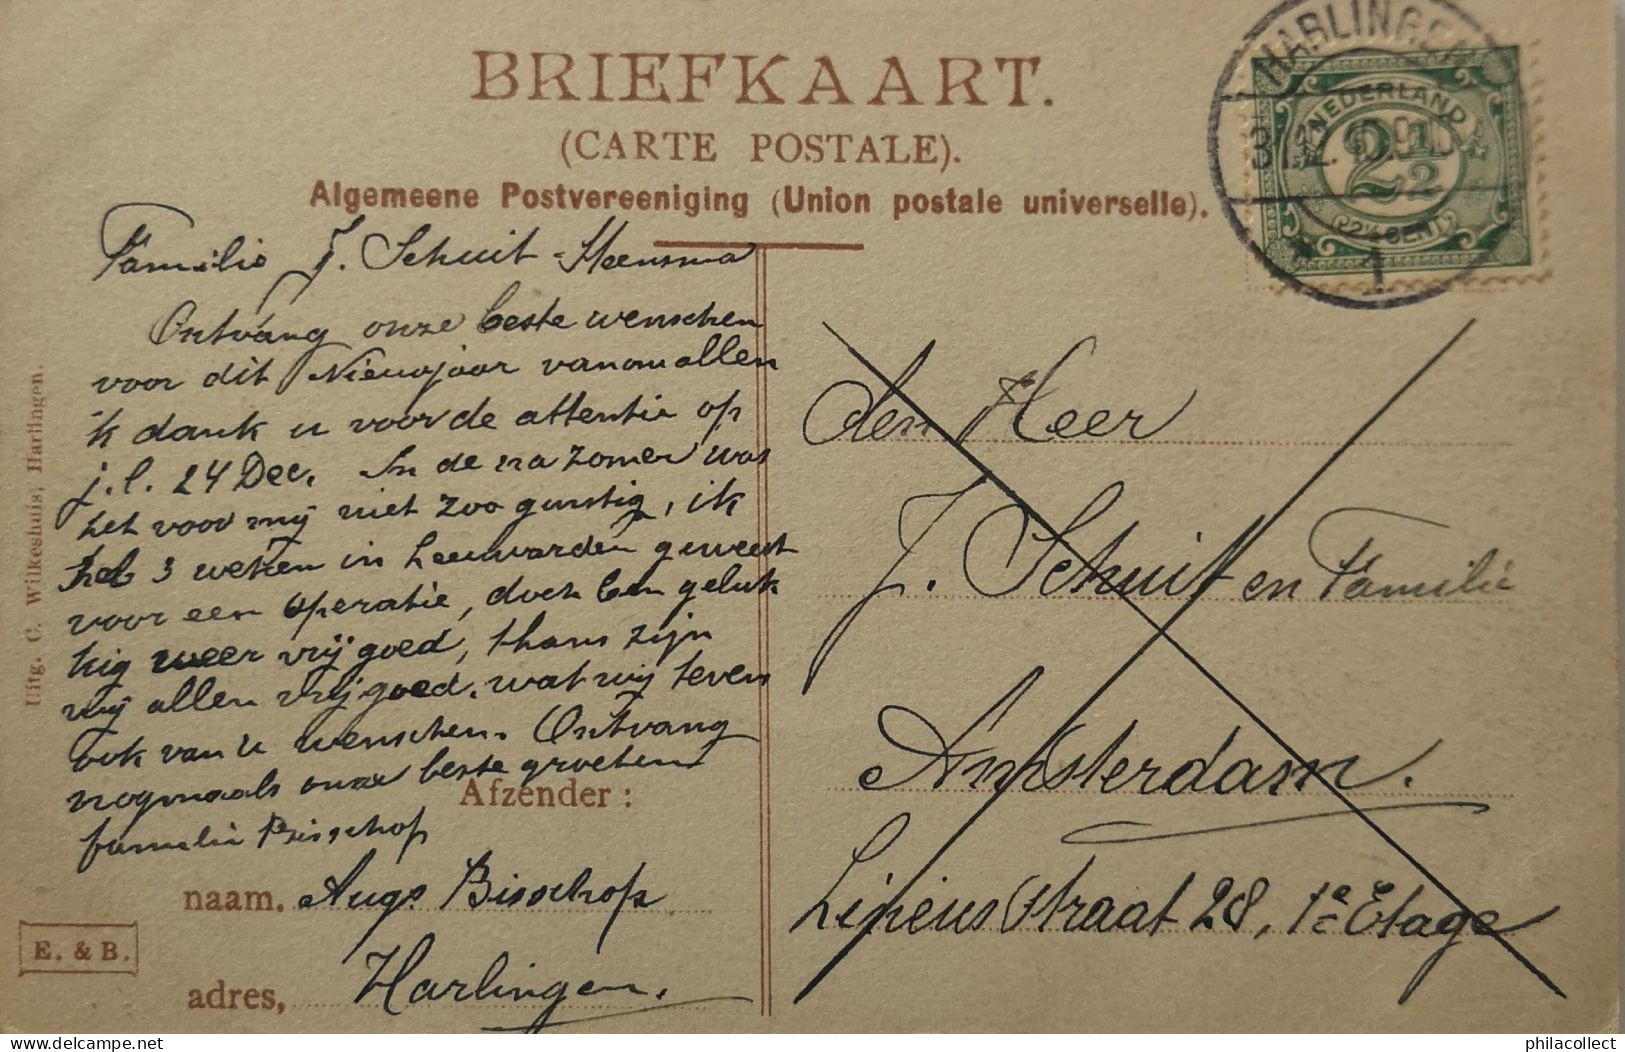 BRIEFKAART.
(CARTE POSTALE).
Algemeene Postvereeniging (Union postale universelle).
HARLINGEN
NEDERLAND
2 1/2
(2½ CENT)
1
Familie J. Schuit-Heensma
Ontvang onze beste wenschen
voor dit Nieuwjaar van ons allen
ik dank u voor de attentie op
j.l. 24 Dec. In de na zomer was
het voor mij niet zoo gunstig, ik
heb 3 weken in Leeuwarden geweest
voor een operatie, doch ben geluk
kig weer vrij goed, thans zijn
wij allen vrij goed, wat wij tevens
ook van U wenschen. Ontvang
nogmaals onze beste groeten
familie Bisschop
Afzender:
naam. Augs Bisschop
adres, Harlingen.
Uitg. C. Wilkeshuis, Harlingen.
E. & B.
den Heer
J. Schuit en Familie
Amsterdam.
Lineus straat 28, 1e Etage
(c) delcampe.net
philacollect